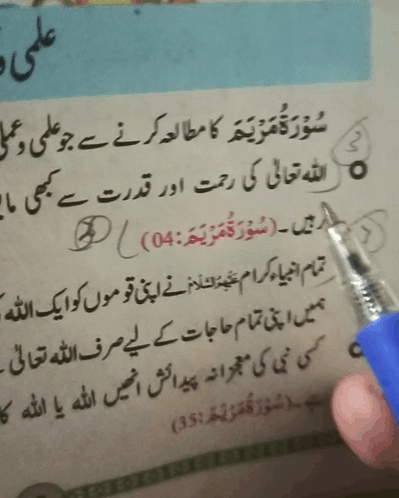 علمی و
سُوْرَةُ مَرْیَمَ کا مطالعہ کرنے سے جو علمی و عملی
اللہ تعالیٰ کی رحمت اور قدرت سے کبھی
رہیں۔ (سُوْرَةُ مَرْیَمَ: 04)
تمام انبیاء کرام عَلَیْہِمُ السَّلَامُ نے اپنی قوموں کو ایک اللہ
ہمیں اپنی تمام حاجات کے لیے صرف اللہ تعالیٰ
کسی نبی کی معجزانہ پیدائش انھیں اللہ یا اللہ کا
ہے۔ (سُوْرَةُ مَرْیَمَ: 35)